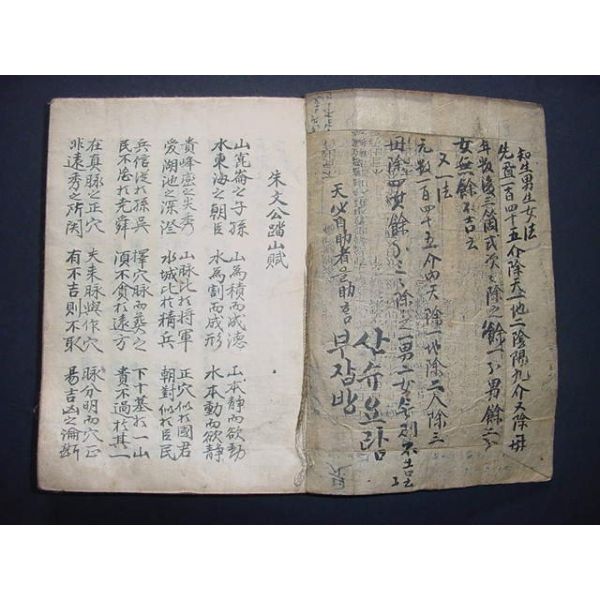 知生男生女法
先置一百四十五介除天一地二陰陽九介又除母
年數後三箇式次次除之餘一介男餘二介
女無餘不吉云
又一法
元數一百四十五介內天除一地除二人除三
母除四 餘 三三除之一男二女 不吉云
天必自助者 助
산슈요람
부잡방
朱文公踏山賦
山崑崙之子孫 山為積而成德 山本靜而欲動
水東海之朝臣 水為割而成形 水本動而欲靜
貴峰巒之尖秀 山脉比於將軍 正穴似於國君
愛湖池之深澄 水城比於精兵 朝對似於臣民
兵信從於孫吳 擇穴脉而葬之 下十墓於一山
民不怨於堯舜 須不貪於遠方 貴不過於其一
在真脉之正穴 夫来脉與作穴 脉分明而穴正
非遠秀之所関 有不吉則不取 易吉凶之渝斷